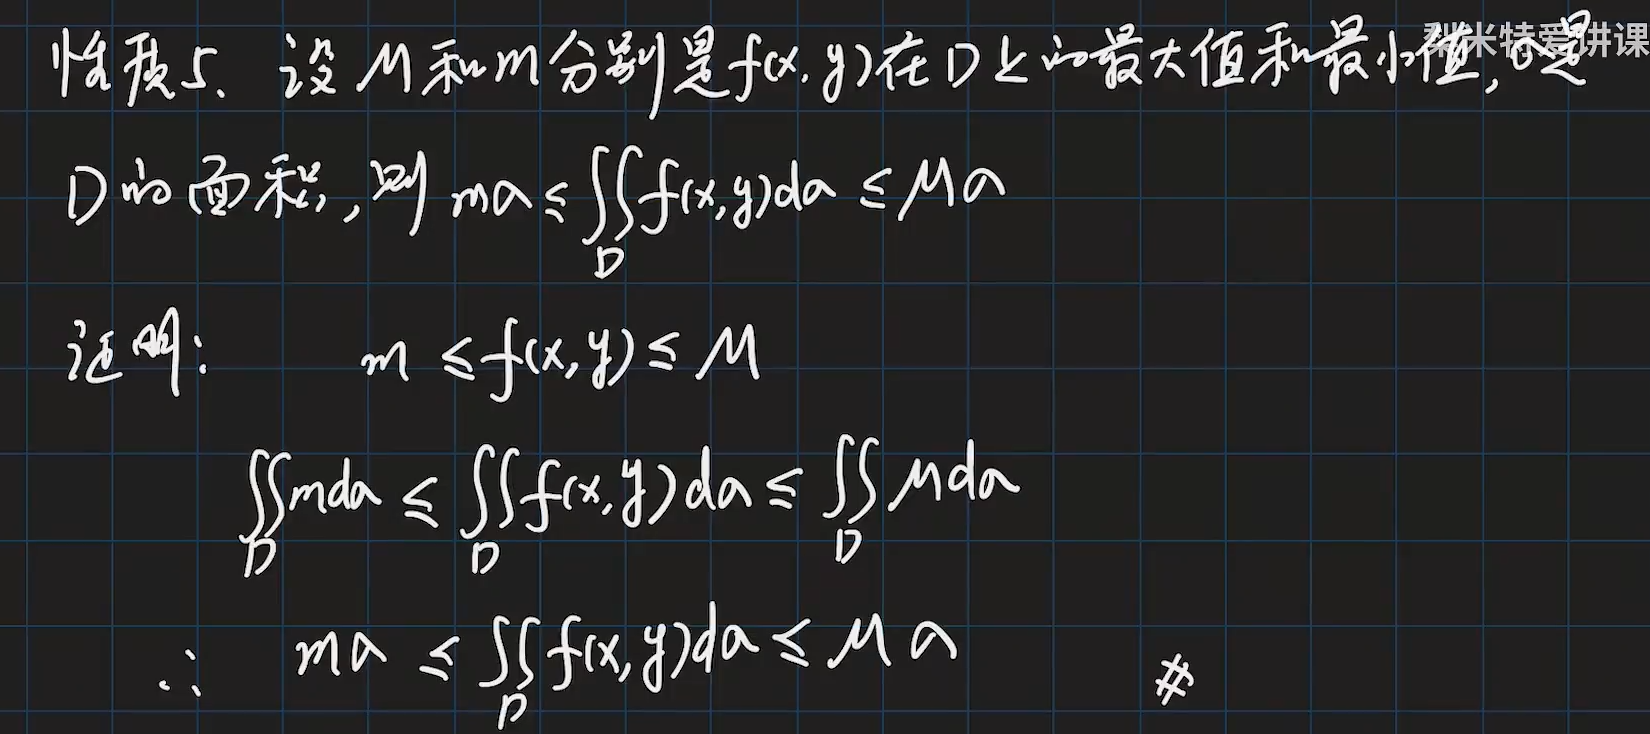 梨米特爱讲课
性质5、设M和m分别是f(x,y)在D上的最大值和最小值,σ是
D的面积,则 mσ ≤ ∬_D f(x,y)dσ ≤ Mσ
证明: m ≤ f(x,y) ≤ M
∬_D mdσ ≤ ∬_D f(x,y)dσ ≤ ∬_D Mdσ
∴ mσ ≤ ∬_D f(x,y)dσ ≤ Mσ #